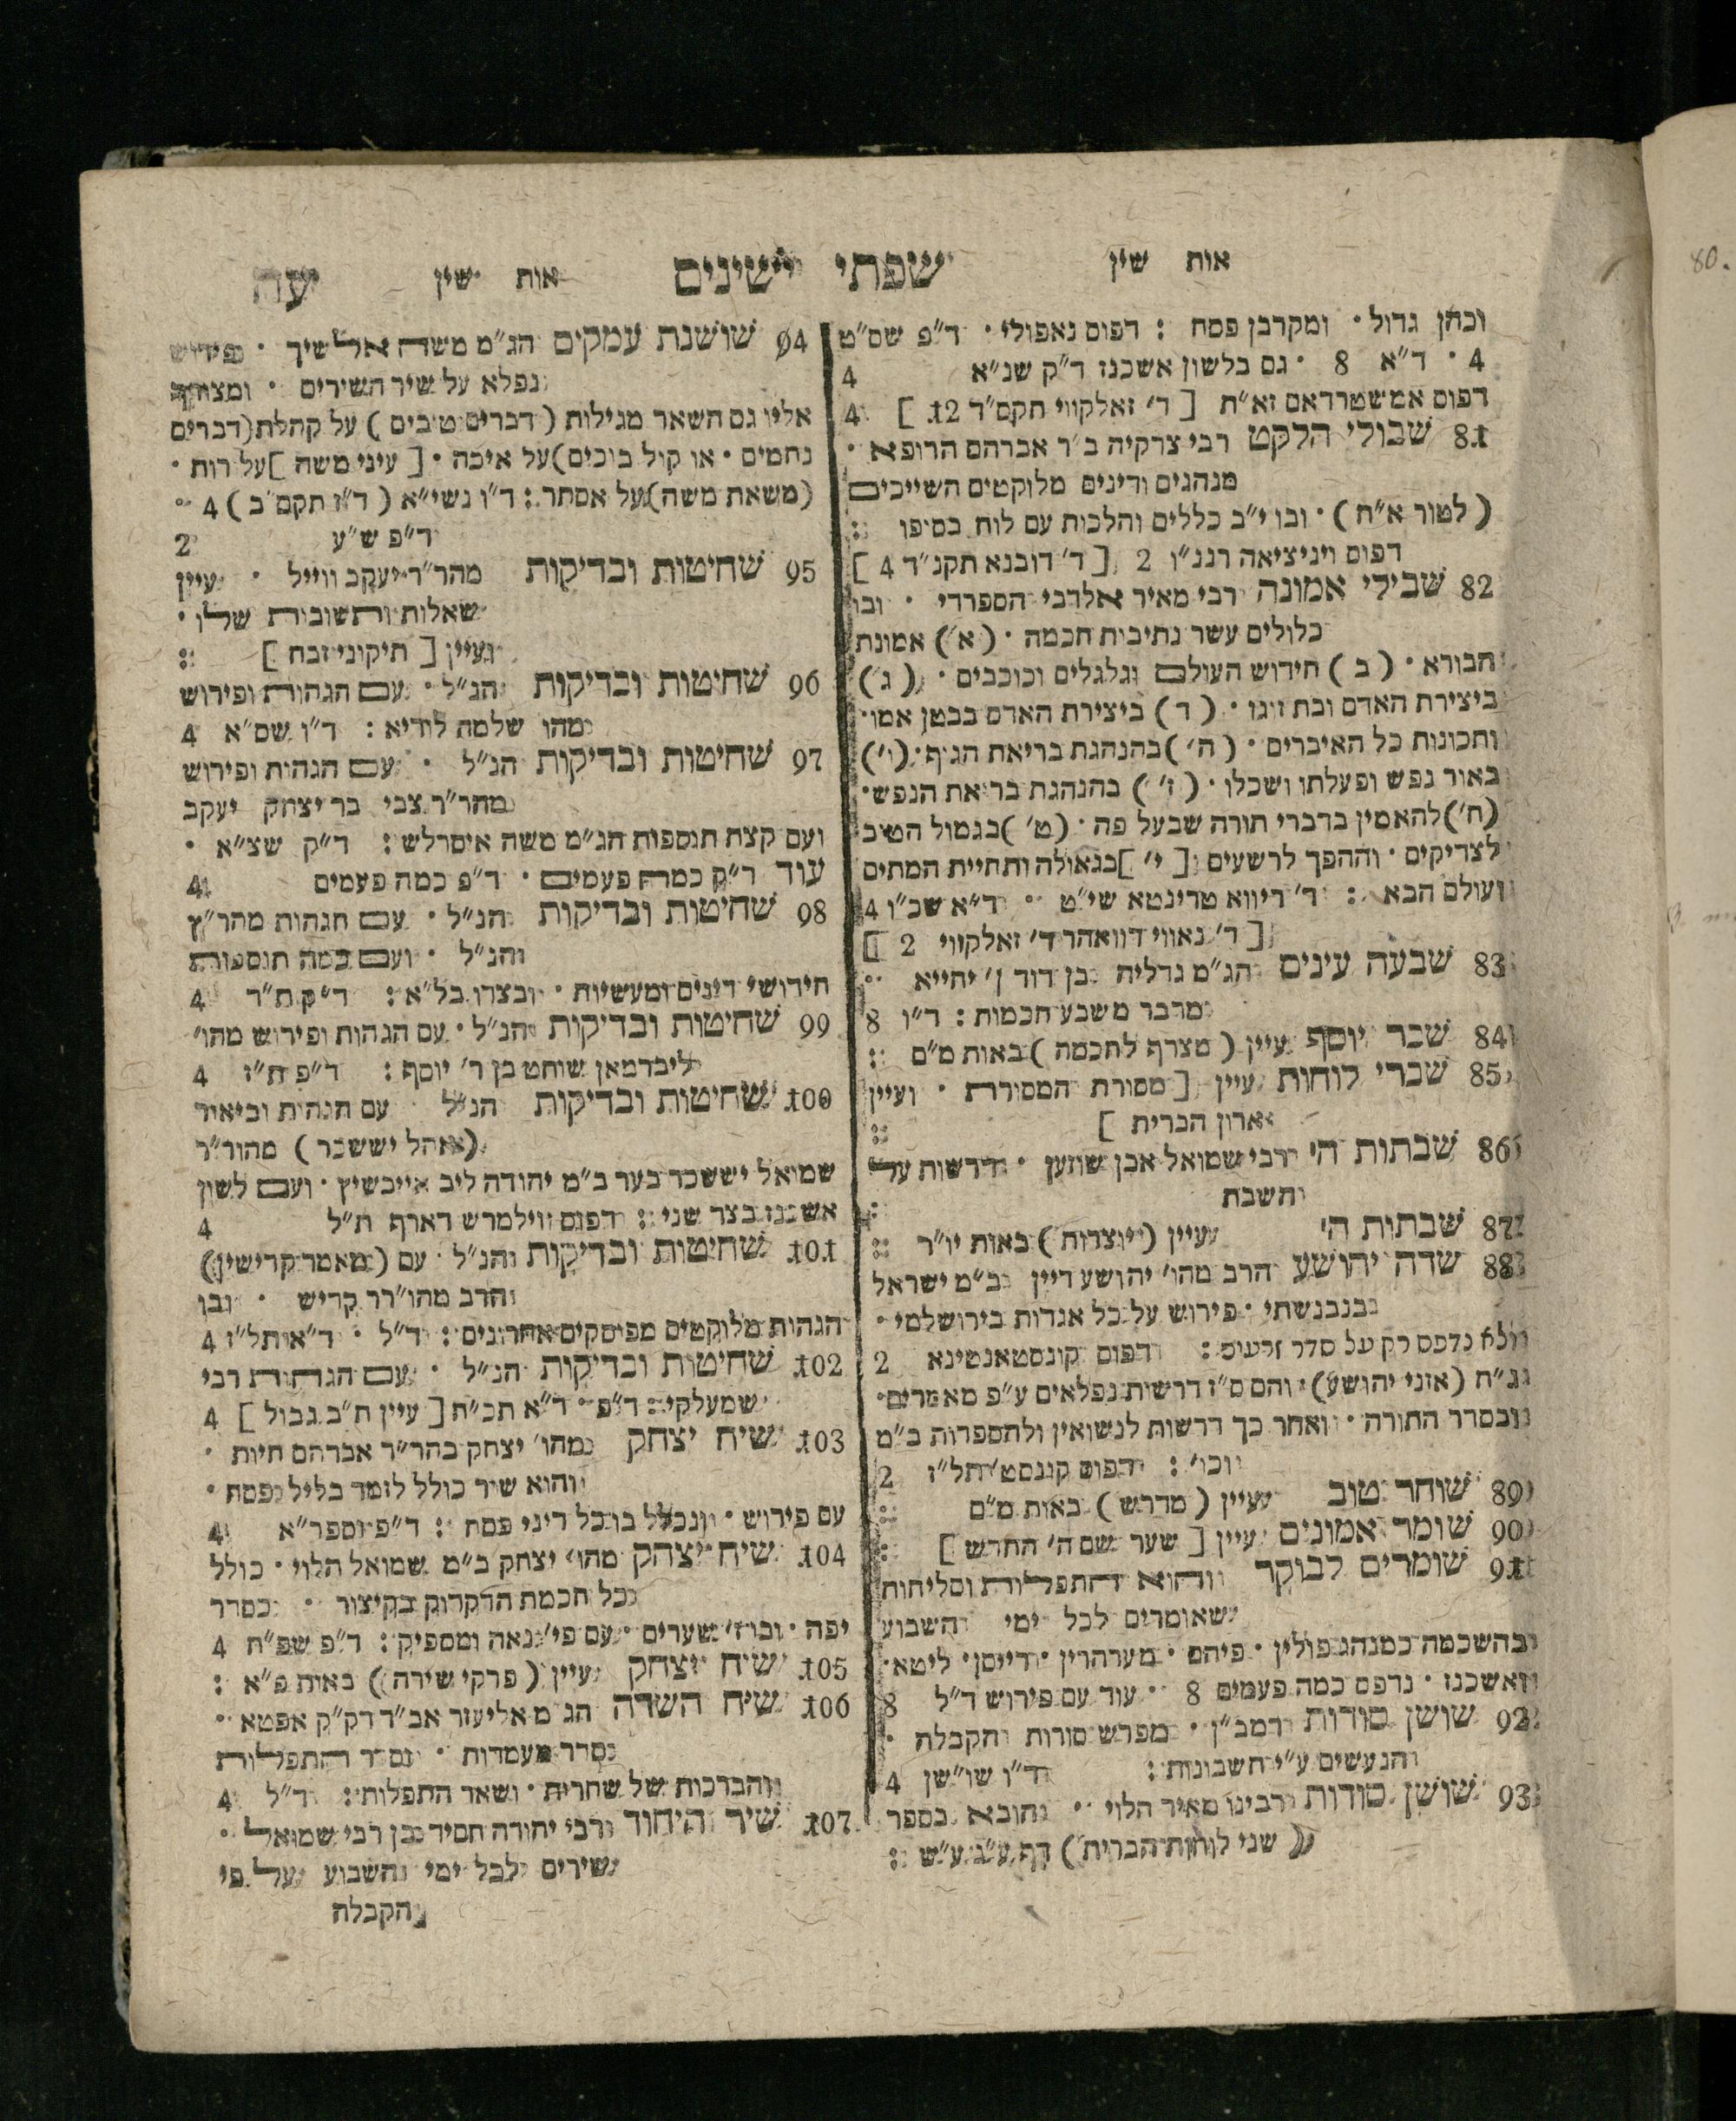 אות שין שפתי ישינים אות שין עה
וכהן גדול · ומקרבן פסח : דפוס נאפולי · ד"פ שס"ט
4 · ד"א 8 · גם בלשון אשכנז ד"ק שנ"א 4
דפוס אמשטרדאם זא"ת [ ד' זאלקווי תקס"ד 12 ] 4
81 שבולי הלקט רבי צדקיה ב"ר אברהם הרופא ·
מנהגים ודינים מלוקטים השייכים
( לטור א"ח ) · ובו י"ב כללים והלכות עם לוח בסיפו :
דפוס ויניציאה 2 [ ד' דובנא תקנ"ד 4 ]
82 שבילי אמונה רבי מאיר אלדבי הספרדי · ובו
כלולים עשר נתיבות חכמה · (א') אמונת
הבורא · ( ב ) חידוש העולם וגלגלים וכוכבים · ( ג' )
ביצירת האדם ובת זוגו · ( ד ) ביצירת האדם בבטן אמו ·
ותכונות כל האיברים · ( ה' ) בהנהגת בריאת הגוף · (ו')
באור נפש ופעלתו ושכלו · ( ז' ) בהנהגת בריאת הנפש ·
(ח') להאמין בדברי תורה שבעל פה · (ט' ) בגמול הטוב
לצדיקים · וההפך לרשעים [ י' ] בגאולה ותחיית המתים
ועולם הבא : ד' ריווא טרינטא שי"ט · ד"א שכ"ו 4
[ ד' נאווי דוואהר ד' זאלקווי 2 ]
83 שבעה עינים הג"מ גדליה בן דוד ן' יחייא ·
מדבר משבע חכמות : ד"ו 8
84 שבר יוסף עיין ( מצרף לחכמה ) באות מ"ם :
85 שברי לוחות עיין [ מסורת המסורת · ועיין
ארון הברית ] :
86 שבתות ה' רבי שמואל אבן שושן · דרשות על
השבת :
87 שבתות ה' עיין ( יוצרות ) באות יו"ד :
88 שדה יהושע הרב מהו' יהושע דיין ב"מ ישראל
בנבנשתי · פירוש על כל אגדות בירושלמי ·
ולא נדפס רק על סדר זרעים : דפוס קונסטאנטינא 2
וג"ח (אזני יהושע) · והם ס"ז דרשות נפלאים ע"פ מאמרים ·
ובסדר התורה · ואחר כך דרשות לנשואין ולהספדות ב"מ
וכו' : דפוס קונסט' תל"ז 2
89 שוחר טוב עיין ( מדרש ) באות מ"ם :
90 שומר אמונים עיין [ שער שם ה' החדש ] :
91 שומרים לבוקר והוא התפלות וסליחות
שאומרים לכל ימי השבוע
ובהשכמה כמנהג פולין · פיהם · מערהרין · דייסן · ליטא ·
ואשכנז · נדפס כמה פעמים 8 · עוד עם פירוש ד"ל 8
92 שושן סודות רמב"ן · מפרש סודות הקבלה ·
והנעשים ע"י חשבונות : ד"ו שו"שן 4
93 שושן סודות רבינו מאיר הלוי · הובא בספר
( שני לוחות הברית ) דף ע"ב ע"ש :
94 שושנת עמקים הג"מ משה אלשיך · פירוש
נפלא על שיר השירים · ומצורף
אליו גם השאר מגילות ( דברים טובים ) על קהלת (דברים
נחמים · או קול בוכים) על איכה · [ עיני משה ] על רות ·
(משאת משה) על אסתר : ד"ו נשי"א ( ד"ז תקס"ב ) 4 ·
ד"פ ש"ע 2
95 שחיטות ובדיקות מהר"ר יעקב ווייל · עיין
שאלות ותשובות שלו ·
ועיין [ תיקוני זבח ] :
96 שחיטות ובדיקות הנ"ל · עם הגהות ופירוש
מהו שלמה לודיא : ד"ו שס"א 4
97 שחיטות ובדיקות הנ"ל · עם הגהות ופירוש
מהר"ר צבי בר יצחק יעקב
ועם קצת תוספות הג"מ משה איסרלש : ד"ק שצ"א ·
עוד ד"ק כמה פעמים · ד"פ כמה פעמים 4
98 שחיטות ובדיקות הנ"ל · עם הגהות מהר"ץ
והנ"ל · ועם כמה תוספות
חידושי דינים ומעשיות · ובצדו בל"א : ד"ק ת"ר 4
99 שחיטות ובדיקות הנ"ל · עם הגהות ופירוש מהו'
ליברמאן שוחט בן ר' יוסף : ד"פ ת"ז 4
100 שחיטות ובדיקות הנ"ל עם הגהות וביאור
(אהל יששכר ) מהור"ר
שמואל יששכר בער ב"מ יהודה ליב אייבשיץ · ועם לשון
אשכנז בצד שני : דפוס ווילמרש דארף ת"ל 4
101 שחיטות ובדיקות הנ"ל · עם ( מאמר קדישין )
הרב מהו"רר קדיש · ובו
הגהות מלוקטים מפוסקים אחרונים : ד"ל · ד"א תל"ז 4
102 שחיטות ובדיקות הנ"ל · עם הגהות רבי
שמעלקי : ד"פ · ד"א תכ"ח [ עיין ח"ב גבול ] 4
103 שיח יצחק מהו' יצחק בהר"ר אברהם חיות ·
והוא שיר כולל לזמר בליל פסח ·
עם פירוש · ונכלל בו כל דיני פסח : ד"פ וספר"א 4
104 שיח יצחק מהו' יצחק ב"מ שמואל הלוי · כולל
כל חכמת הדקדוק בקיצור · כסדר
יפה · ובו ז' שערים · עם פי' נאה ומספיק : ד"פ שפ"ח 4
105 שיח יצחק עיין ( פרקי שירה ) באות פ"א :
106 שיח השדה הג"מ אליעזר אב"ד דק"ק אפטא ·
סדר מעמדות · וסדר התפלות
והברכות של שחרית · ושאר התפלות : ד"ל 4
107 שיר היחוד רבי יהודה חסיד בן רבי שמואל ·
שירים לכל ימי השבוע על פי
הקבלה
80.